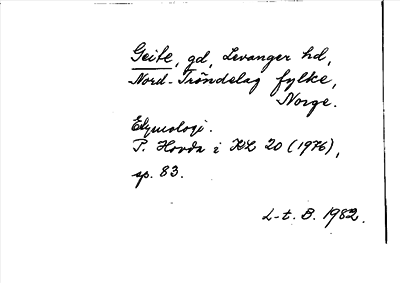 Geite, gd, Levanger hd,
Nord-Tröndelag fylke,
Norge.
Etymologi.
P. Hovda i KL 20 (1976),
sp. 83.
L-t. B. 1982.